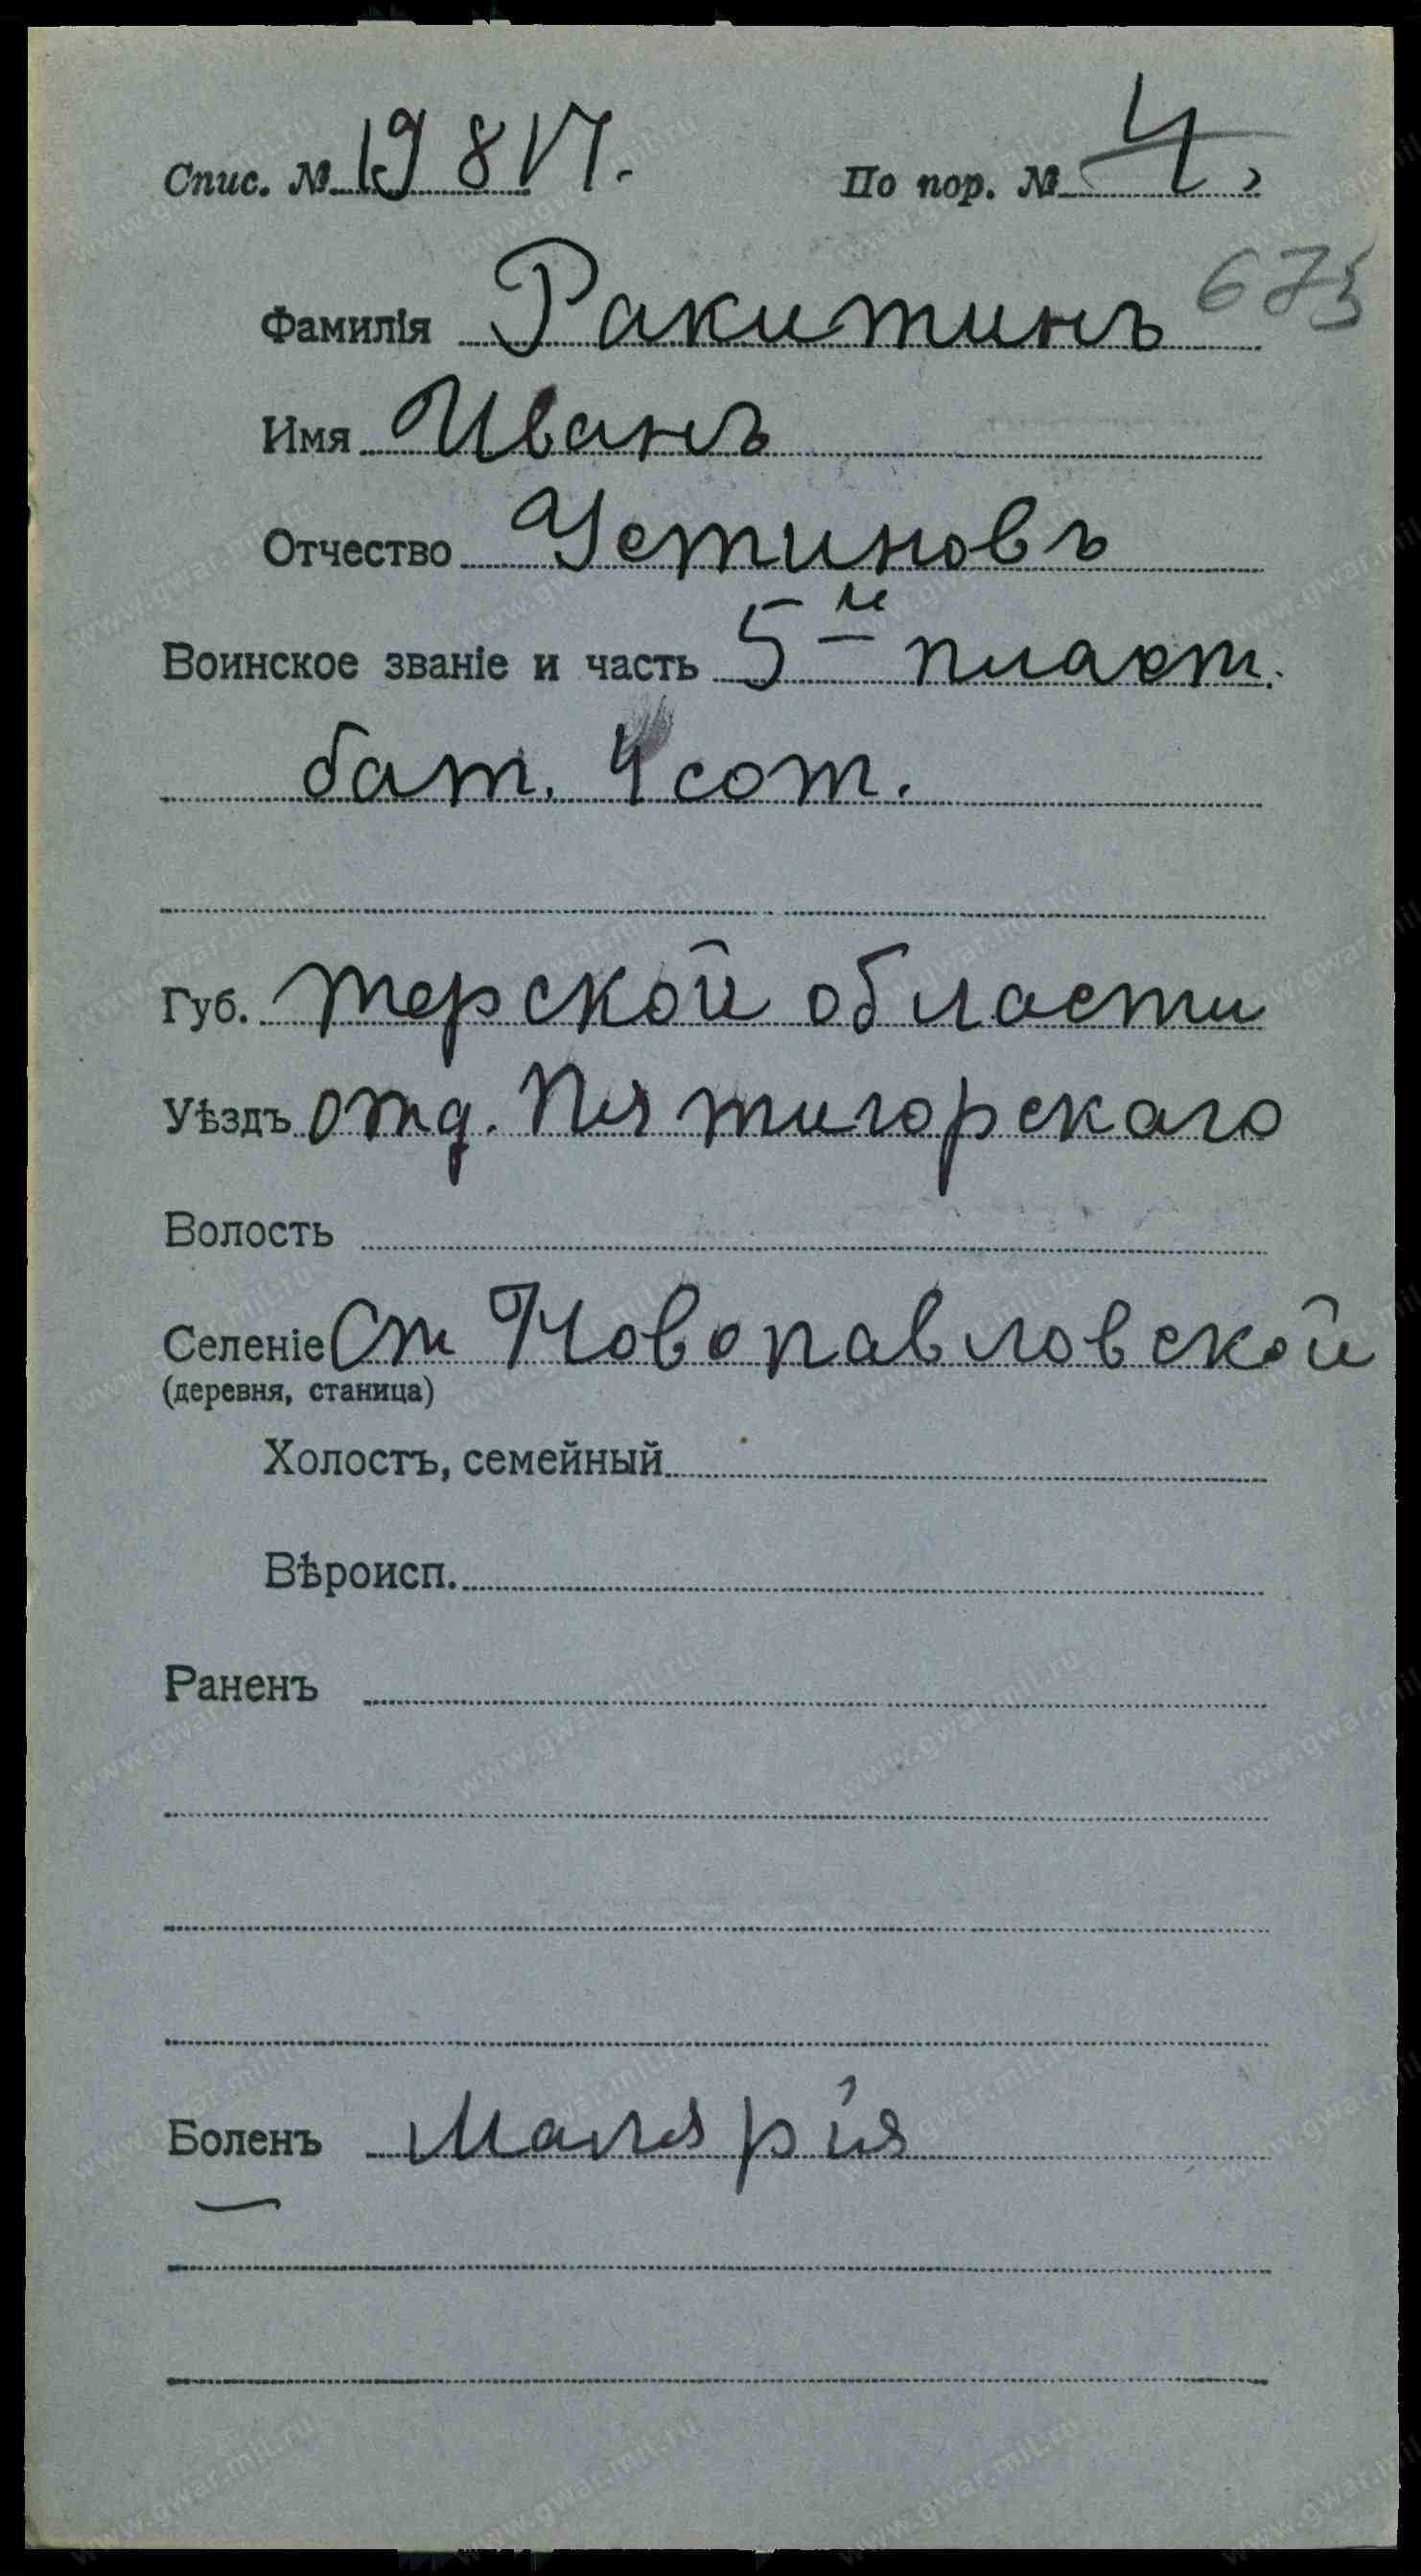 Спис. № 19817. По пор. № 4
673
Фамилія Ракитинъ
Имя Иванъ
Отчество Устиновъ
Воинское званіе и часть 5 й пласт.
бат. 4 сот.
Губ. терской области
Уѣздъ отд. Пятигорскаго
Волость
Селеніе Ст Новопавловской
(деревня, станица)
Холостъ, семейный
Вѣроисп.
Раненъ
Боленъ Малярія
www.gwar.mil.ru